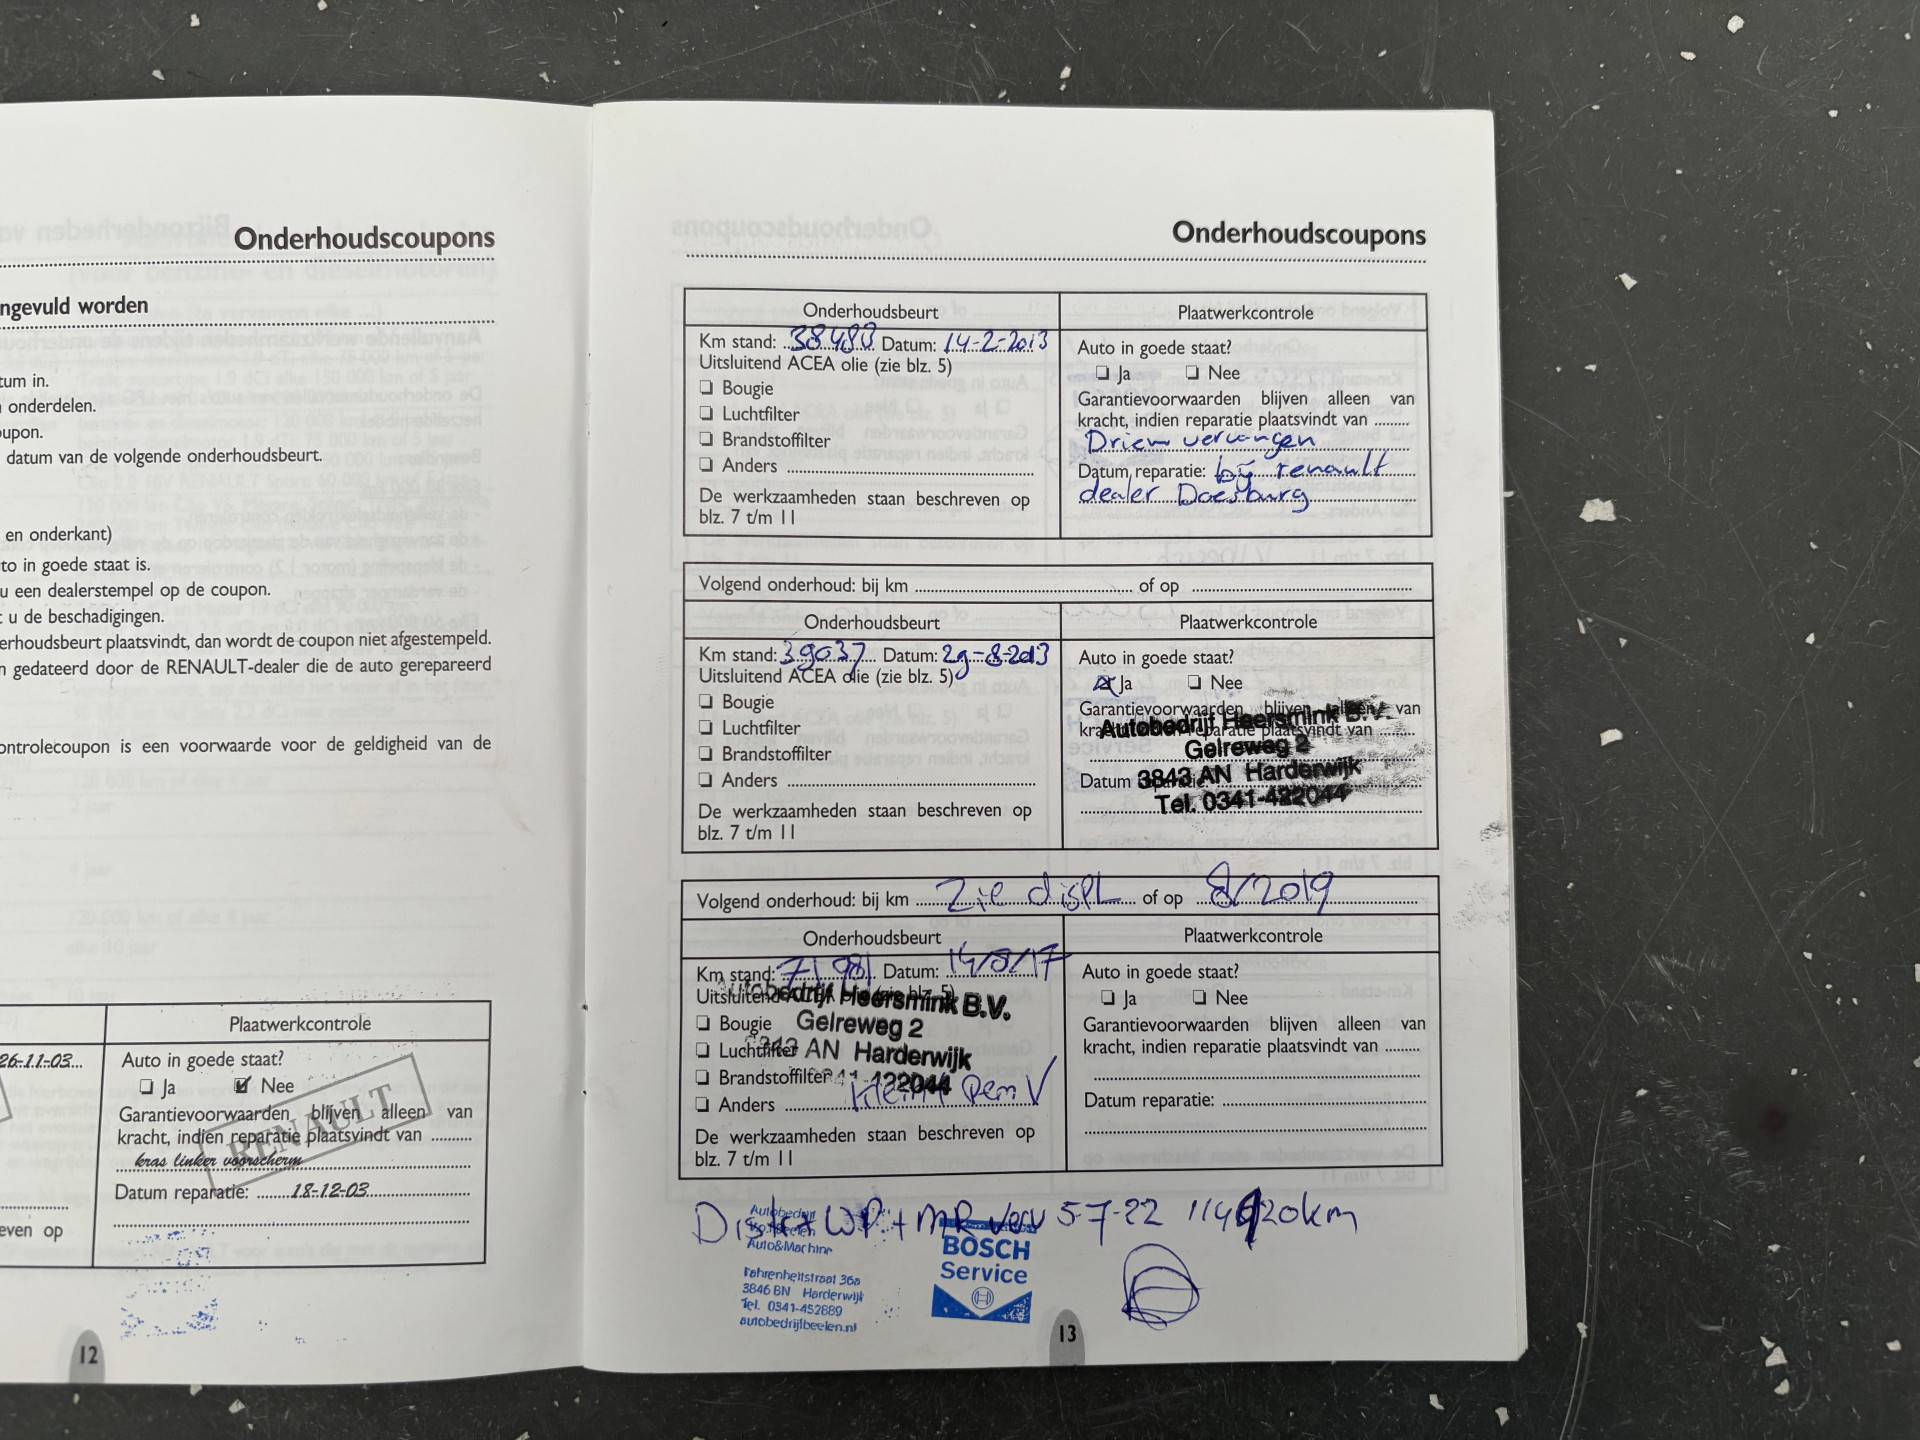 Onderhoudscoupons
ngevuld worden
tum in.
onderdelen.
oupon.
datum van de volgende onderhoudsbeurt.
en onderkant)
to in goede staat is.
u een dealerstempel op de coupon.
u de beschadigingen.
erhoudsbeurt plaatsvindt, dan wordt de coupon niet afgestempeld.
n gedateerd door de RENAULT-dealer die de auto gerepareerd
ontrolecoupon is een voorwaarde voor de geldigheid van de
Plaatwerkcontrole
26-11-03...
Auto in goede staat?
Ja Nee
Garantievoorwaarden blijven alleen van
kracht, indien reparatie plaatsvindt van ..........
RENAULT
kras linker voorscherm
Datum reparatie: 18-12-03
even op
12
Onderhoudscoupons
Onderhoudsbeurt
Km stand: 38480 Datum: 14-2-2013
Uitsluitend ACEA olie (zie blz. 5)
Bougie
Luchtfilter
Brandstoffilter
Anders
De werkzaamheden staan beschreven op
blz. 7 t/m 11
Plaatwerkcontrole
Auto in goede staat?
Ja Nee
Garantievoorwaarden blijven alleen van
kracht, indien reparatie plaatsvindt van .........
Driem vervangen
Datum reparatie: bij renault
dealer Doesburg
Volgend onderhoud: bij km of op
Onderhoudsbeurt
Km stand: 39037 Datum: 29-8-2013
Uitsluitend ACEA olie (zie blz. 5)
Bougie
Luchtfilter
Brandstoffilter
Anders
De werkzaamheden staan beschreven op
blz. 7 t/m 11
Plaatwerkcontrole
Auto in goede staat?
Ja Nee
Garantievoorwaarden blijven alleen van
kracht, indien reparatie plaatsvindt van
Autobedrijf Heersmink B.V.
Gelreweg 2
Datum reparatie:
3843 AN Harderwijk
Tel. 0341-422044
Volgend onderhoud: bij km Zie displ of op 8/2019
Onderhoudsbeurt
Km stand: 71981 Datum: 14/8/17
Uitsluitend ACEA olie (zie blz. 5)
Autobedrijf Heersmink B.V.
Bougie
Gelreweg 2
Luchtfilter
3843 AN Harderwijk
Brandstoffilter
0341-422044
Anders Klein Rem V
De werkzaamheden staan beschreven op
blz. 7 t/m 11
Plaatwerkcontrole
Auto in goede staat?
Ja Nee
Garantievoorwaarden blijven alleen van
kracht, indien reparatie plaatsvindt van .........
Datum reparatie:
+ WP + MR verv 5-7-22 km
Autobedrijf
Beelen
Auto&Machine
Fahrenheitstraat 36a
3846 BN Harderwijk
Tel. 0341-452889
autobedrijfbeelen.nl
BOSCH
Service
13